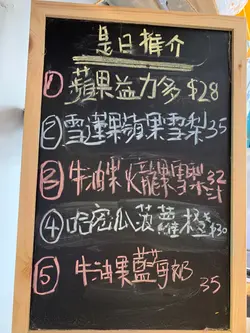 是日推介
① 蘋果益力多 $28
② 雪蓮果蘋果雪梨 35
③ 牛油果火龍果雪梨 32
④ 哈密瓜菠蘿橙 $30
⑤ 牛油果藍莓奶 35